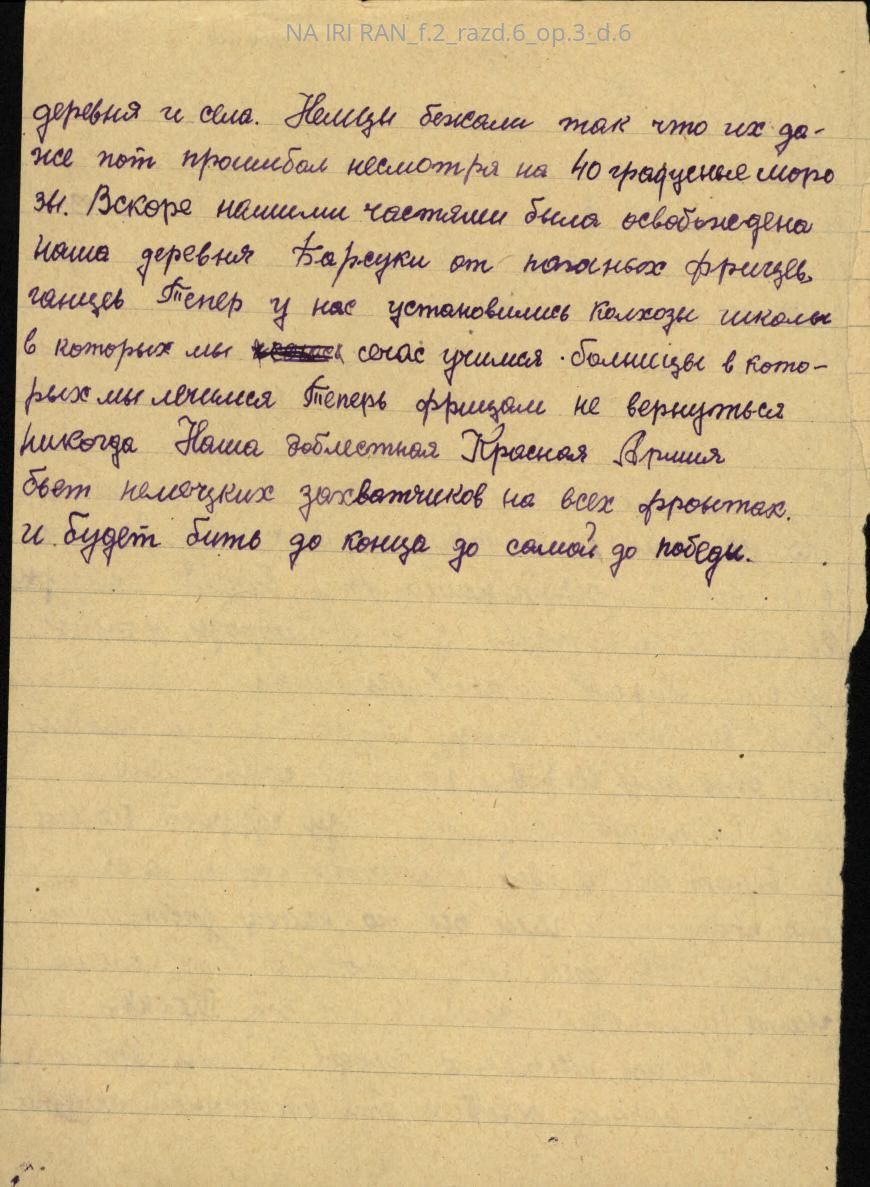 NA IRI RAN_f.2_razd.6_op.3_d.6
деревня и села. Немцы бежали так что их да-
же пот прошибал несмотря на 40 градусные моро
зы. Вскоре нашими частями была освобождена
наша деревня Барсуки от поганых фрицев,
ганцев Тепер у нас установились колхозы школы
в которых мы сечас учимся. болницы в кото-
рых мы лечимся Теперь фрицам не вернуться
никогда Наша доблестная Красная Армия
бьет немецких захватчиков на всех фронтах.
и будет бить до конца до самой до победы.